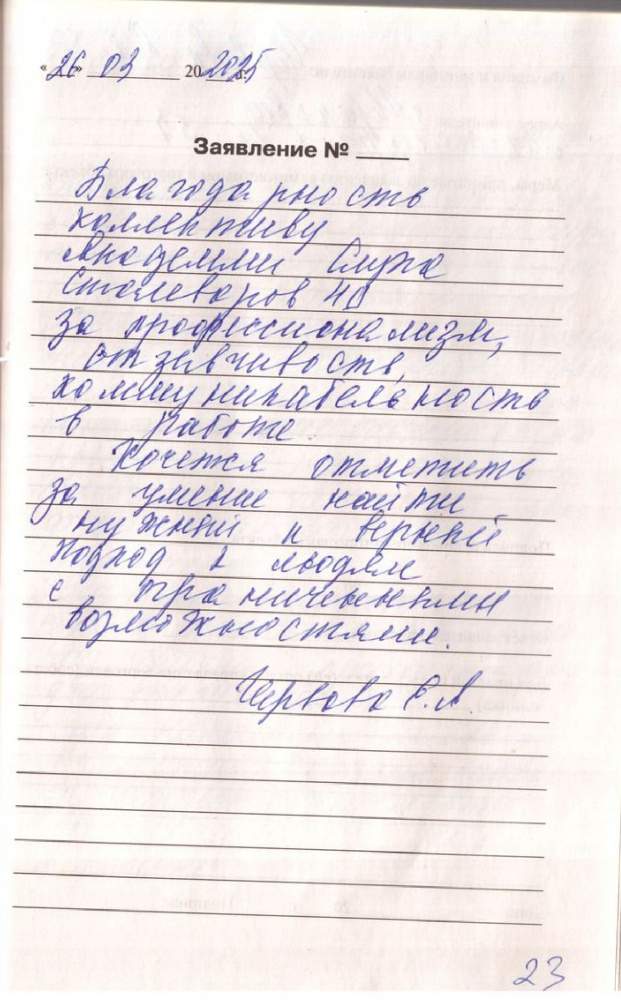 «26» 03 20 2025 г.
Заявление №
Благодарность
коллективу
Академии Слуха
Сталеваров 40
за профессионализм,
отзывчивость,
коммуникабельность
в работе.
Хочется отметить
за умение найти
нужный и верный
подход к людям
с ограниченными
возможностями.
Е.А.
23